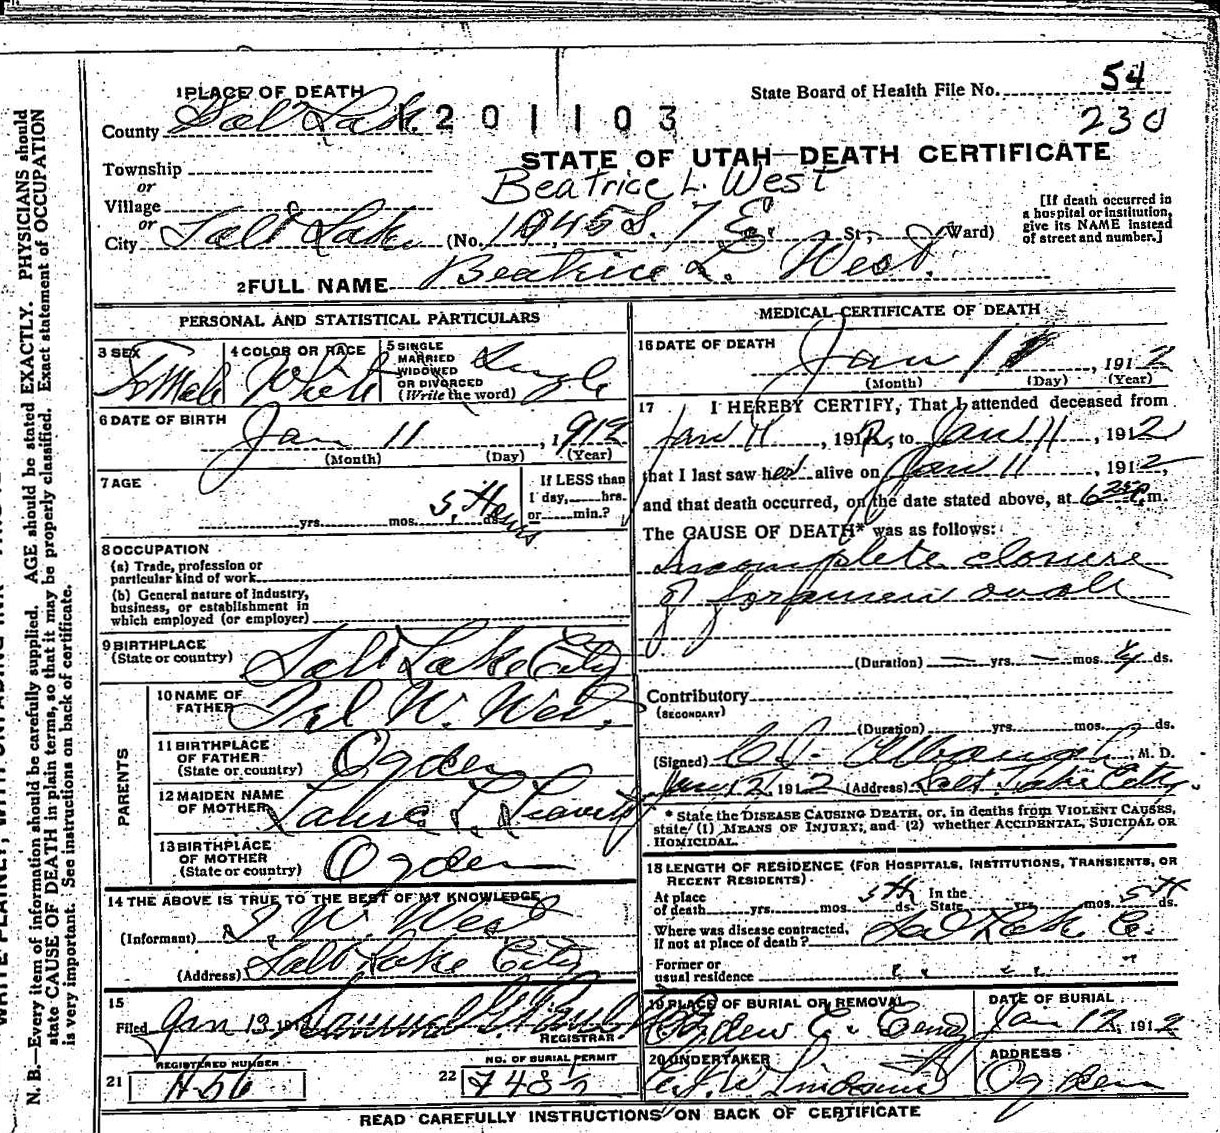 54
State Board of Health File No.
1 PLACE OF DEATH
County Salt Lake 1201103
230
STATE OF UTAH—DEATH CERTIFICATE
Township
or
Beatrice L. West
Village
or
City Salt Lake (No. 1045 S. 7 E. St; Ward)
[If death occurred in
a hospital or institution,
give its NAME instead
of street and number.]
2 FULL NAME Beatrice L. West.
PERSONAL AND STATISTICAL PARTICULARS
3 SEX
FeMale
4 COLOR OR RACE
White
5 SINGLE
MARRIED
WIDOWED
OR DIVORCED
(Write the word)
Single
6 DATE OF BIRTH
Jan 11, 1912
(Month) (Day) (Year)
7 AGE
yrs. mos. ds.
5 Hours
If LESS than
1 day, hrs.
or min.?
8 OCCUPATION
(a) Trade, profession or
particular kind of work
(b) General nature of industry,
business, or establishment in
which employed (or employer)
9 BIRTHPLACE
(State or country) Salt Lake City
PARENTS
10 NAME OF
FATHER W. West
11 BIRTHPLACE
OF FATHER
(State or country) Ogden
12 MAIDEN NAME
OF MOTHER L. Leavitt
13 BIRTHPLACE
OF MOTHER
(State or country) Ogden
14 THE ABOVE IS TRUE TO THE BEST OF MY KNOWLEDGE
(Informant) W. West
(Address) Salt Lake City
15
Filed Jan 13, 191 Samuel G.
REGISTRAR
REGISTERED NUMBER
21
NO. OF BURIAL PERMIT
22
MEDICAL CERTIFICATE OF DEATH
16 DATE OF DEATH
Jan 11, 1912
(Month) (Day) (Year)
17 I HEREBY CERTIFY, That I attended deceased from
Jan 11, 1912, to Jan 11, 1912
that I last saw her alive on Jan 11, 1912,
and that death occurred, on the date stated above, at 6 P.m.
The CAUSE OF DEATH* was as follows:
Incomplete closure
of foramen ovale
(Duration) — yrs. — mos. ¼ ds.
Contributory
(SECONDARY)
(Duration) yrs. mos. ds.
(Signed) M. D.
Jan 12, 1912 (Address) Salt Lake City
* State the DISEASE CAUSING DEATH, or, in deaths from VIOLENT CAUSES,
state (1) MEANS OF INJURY; and (2) whether ACCIDENTAL, SUICIDAL OR
HOMICIDAL.
18 LENGTH OF RESIDENCE (FOR HOSPITALS, INSTITUTIONS, TRANSIENTS, OR
RECENT RESIDENTS).
At place
of death yrs. mos. 5 H ds.
In the
State yrs. mos. 5 H ds.
Where was disease contracted,
if not at place of death? Salt Lake C.
Former or
usual residence " " "
19 PLACE OF BURIAL OR REMOVAL
Ogden C. Cem
DATE OF BURIAL
Jan 12, 1912
20 UNDERTAKER
ADDRESS
Ogden
READ CAREFULLY INSTRUCTIONS ON BACK OF CERTIFICATE
N. B.—Every item of information should be carefully supplied. AGE should be stated EXACTLY. PHYSICIANS should
state CAUSE OF DEATH in plain terms, so that it may be properly classified. Exact statement of OCCUPATION
is very important. See instructions on back of certificate.